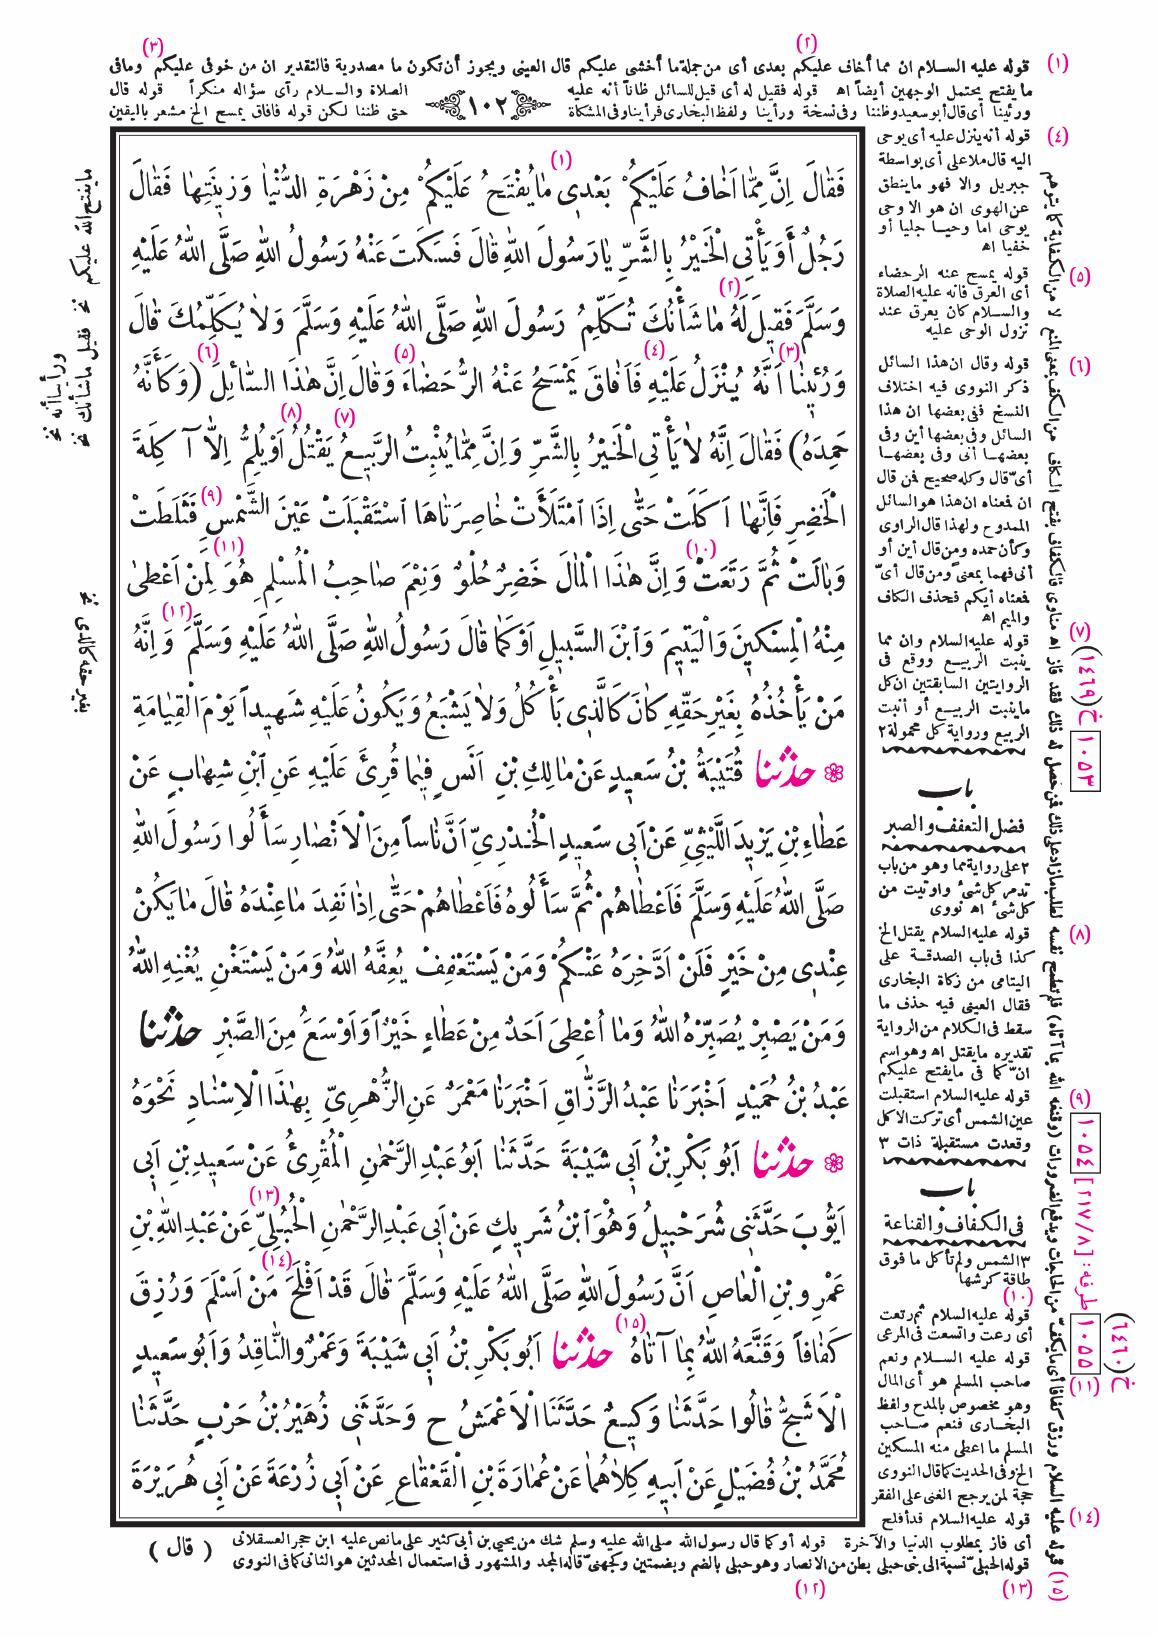 (١) قوله عليه السلام ان مما أخاف عليكم بعدى أى من جملة ما أخشى عليكم قال العينى ويجوز أن تكون ما مصدرية فالتقدير ان من خوفى عليكم وما فى
ما يفتح يحتمل الوجهين أيضاً اه (٢) قوله فقيل له أى قيل للسائل ظاناً أنه عليه الصلاة والسلام رآى سؤاله منكراً (٣) قوله قال
ورئينا أى قال أبو سعيد وظننا وفى نسخة ورأينا ولفظ البخارى فرأينا وفى المشكاة حتى ظننا لكن قوله فافاق يمسح الخ مشعر باليقين
١٠٢
فَقَالَ اِنَّ مِمَّا اَخَافُ عَلَيْكُمْ بَعْدِى (١) مَا يُفْتَحُ عَلَيْكُمْ مِنْ زَهْرَةِ الدُّنْيَا وَزِينَتِهَا فَقَالَ
رَجُلٌ أَوَ يَأْتِى الْخَيْرُ بِالشَّرِّ يَا رَسُولَ اللهِ قَالَ فَسَكَتَ عَنْهُ رَسُولُ اللهِ صَلَّى اللهُ عَلَيْهِ
وَسَلَّمَ فَقِيلَ لَهُ (٢) مَا شَأْنُكَ تُكَلِّمُ رَسُولَ اللهِ صَلَّى اللهُ عَلَيْهِ وَسَلَّمَ وَلَا يُكَلِّمُكَ قَالَ
وَرُئِينَا (٣) اَنَّهُ يُنْزَلُ عَلَيْهِ (٤) فَاَفَاقَ يَمْسَحُ عَنْهُ الرُّحَضَاءَ (٥) وَقَالَ اِنَّ هٰذَا السَّائِلَ (٦) (وَكَأَنَّهُ
حَمِدَهُ) فَقَالَ اِنَّهُ لَا يَأْتِى الْخَيْرُ بِالشَّرِّ وَاِنَّ مِمَّا يُنْبِتُ الرَّبِيعُ (٧) يَقْتُلُ (٨) اَوْ يُلِمُّ اِلَّا آكِلَةَ
الْخَضِرِ فَاِنَّهَا اَكَلَتْ حَتّٰى اِذَا امْتَلَأَتْ خَاصِرَتَاهَا اسْتَقْبَلَتْ عَيْنَ الشَّمْسِ (٩) فَثَلَطَتْ
وَبَالَتْ ثُمَّ رَتَعَتْ (١٠) وَاِنَّ هٰذَا الْمَالَ خَضِرٌ حُلْوٌ وَنِعْمَ صَاحِبُ الْمُسْلِمِ (١١) هُوَ لِمَنْ اَعْطٰى
مِنْهُ الْمِسْكِينَ وَالْيَتِيمَ وَابْنَ السَّبِيلِ اَوْ كَمَا قَالَ رَسُولُ اللهِ صَلَّى اللهُ عَلَيْهِ وَسَلَّمَ (١٢) وَاِنَّهُ
مَنْ يَأْخُذُهُ بِغَيْرِ حَقِّهِ كَانَ كَالَّذِى يَأْكُلُ وَلَا يَشْبَعُ وَيَكُونُ عَلَيْهِ شَهِيداً يَوْمَ الْقِيَامَةِ
حدثنا قُتَيْبَةُ بْنُ سَعِيدٍ عَنْ مَالِكِ بْنِ اَنَسٍ فِيمَا قُرِئَ عَلَيْهِ عَنِ ابْنِ شِهَابٍ عَنْ
عَطَاءِ بْنِ يَزِيدَ اللَّيْثِىِّ عَنْ اَبِى سَعِيدٍ الْخُدْرِىِّ اَنَّ نَاساً مِنَ الْاَنْصَارِ سَأَلُوا رَسُولَ اللهِ
صَلَّى اللهُ عَلَيْهِ وَسَلَّمَ فَاَعْطَاهُمْ ثُمَّ سَأَلُوهُ فَاَعْطَاهُمْ حَتّٰى اِذَا نَفِدَ مَا عِنْدَهُ قَالَ مَا يَكُنْ
عِنْدِى مِنْ خَيْرٍ فَلَنْ اَدَّخِرَهُ عَنْكُمْ وَمَنْ يَسْتَعْفِفْ يُعِفَّهُ اللهُ وَمَنْ يَسْتَغْنِ يُغْنِهِ اللهُ
وَمَنْ يَصْبِرْ يُصَبِّرْهُ اللهُ وَمَا اُعْطِىَ اَحَدٌ مِنْ عَطَاءٍ خَيْرٌ وَاَوْسَعُ مِنَ الصَّبْرِ حدثنا
عَبْدُ بْنُ حُمَيْدٍ اَخْبَرَنَا عَبْدُ الرَّزَّاقِ اَخْبَرَنَا مَعْمَرٌ عَنِ الزُّهْرِىِّ بِهٰذَا الْاِسْنَادِ نَحْوَهُ
حدثنا اَبُو بَكْرِ بْنُ اَبِى شَيْبَةَ حَدَّثَنَا اَبُو عَبْدِ الرَّحْمٰنِ الْمُقْرِئُ عَنْ سَعِيدِ بْنِ اَبِى
اَيُّوبَ حَدَّثَنِى شُرَحْبِيلُ وَهُوَ ابْنُ شَرِيكٍ عَنْ اَبِى عَبْدِ الرَّحْمٰنِ الْحُبُلِىِّ (١٣) عَنْ عَبْدِ اللهِ بْنِ
عَمْرِو بْنِ الْعَاصِ اَنَّ رَسُولَ اللهِ صَلَّى اللهُ عَلَيْهِ وَسَلَّمَ قَالَ قَدْ اَفْلَحَ (١٤) مَنْ اَسْلَمَ وَرُزِقَ
كَفَافاً وَقَنَّعَهُ اللهُ بِمَا آتَاهُ (١٥) حدثنا اَبُو بَكْرِ بْنُ اَبِى شَيْبَةَ وَعَمْرٌو النَّاقِدُ وَاَبُو سَعِيدٍ
الْاَشَجُّ قَالُوا حَدَّثَنَا وَكِيعٌ حَدَّثَنَا الْاَعْمَشُ ح وَحَدَّثَنِى زُهَيْرُ بْنُ حَرْبٍ حَدَّثَنَا
مُحَمَّدُ بْنُ فُضَيْلٍ عَنْ اَبِيهِ كِلَاهُمَا عَنْ عُمَارَةَ بْنِ الْقَعْقَاعِ عَنْ اَبِى زُرْعَةَ عَنْ اَبِى هُرَيْرَةَ
(٤) قوله أنه ينزل عليه أى يوحى
اليه قال ملا على أى بواسطة
جبريل والا فهو ما ينطق
عن الهوى ان هو الا وحى
يوحى اما وحيا جليا أو
خفيا اه
(٥) قوله يمسح عنه الرحضاء
أى العرق فانه عليه الصلاة
والسلام كان يعرق عند
نزول الوحى عليه
(٦) قوله وقال ان هذا السائل
ذكر النووى فيه اختلاف
النسخ ففى بعضها ان هذا
السائل وفى بعضها أين وفى
بعضها أنى وفى بعضها
أى قال وكله صحيح فمن قال
ان فمعناه ان هذا هو السائل
الممدوح ولهذا قال الراوى
وكأن حمده ومن قال أين أو
أنى فهما بمعنى ومن قال أىّ
فمعناه أيكم فحذف الكاف
والميم اه
(٧) قوله عليه السلام وان مما
ينبت الربيع ووقع فى
الروايتين السابقتين ان كل
ما ينبت الربيع أو أنبت
الربيع ورواية كل محمولة ٢
باب
فضل التعفف والصبر
٢ على رواية مما وهو من باب
تدمر كل شئ واوتيت من
كل شئ اه نووى
(٨) قوله عليه السلام يقتل الخ
كذا فى باب الصدقة على
اليتامى من زكاة البخارى
فقال العينى فيه حذف ما
سقط فى الكلام من الرواية
تقديره ما يقتل اه وهو اسم
انّ كما فى ما يفتح عليكم
(٩) قوله عليه السلام استقبلت
عين الشمس أى تركت الاكل
وقعدت مستقبلة ذات ٣
باب
فى الكفاف والقناعة
٣ الشمس ولم تأكل ما فوق
طاقة كرشها
(١٠) قوله عليه السلام ثم رتعت
أى رعت واتسعت فى المرعى
(١١) قوله عليه السلام ونعم
صاحب المسلم هو أى المال
وهو مخصوص بالمدح ولفظ
البخارى فنعم صاحب
المسلم ما اعطى منه المسكين
الخ وفى الحديث كما قال النووى
حجة لمن يرجح الغنى على الفقر
(١٤) قوله عليه السلام قد أفلح
أى فاز بمطلوب الدنيا والآخرة (١٢) قوله أو كما قال رسول الله صلى الله عليه وسلم شك من يحيى بن أبى كثير على ما نص عليه ابن حجر العسقلانى
(١٣) قوله الحبلىّ نسبة الى بنى حبلى بطن من الانصار وهو حبلى بالضم وبضمتين وكجهنىّ قاله المجد والمشهور فى استعمال المحدثين هو الثانى كما فى النووى
( قال )
ما يفتح الله عليكم نخ
فقيل ما شأنك نخ
ورأينا أنه نخ
بغير حقه كالذى نخ
١٠٥٣ خ (١٤٦٩)
١٠٥٤ [طرفه: ٢١٧/٨]
١٠٥٥ خ (٦٤٦٠)